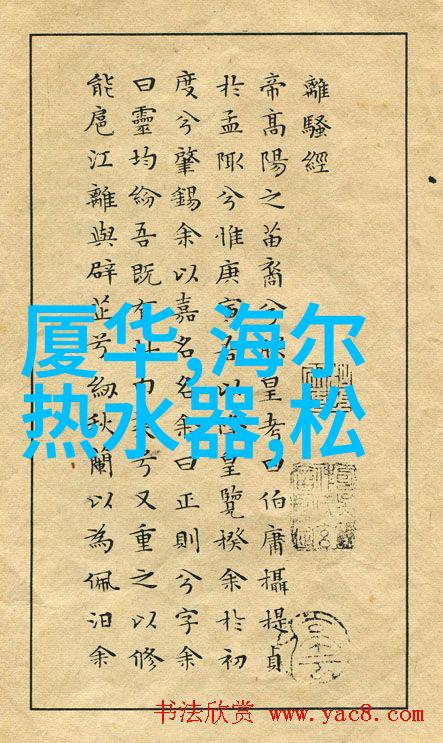 離騷經
帝高陽之苗裔兮皇考曰伯庸攝提貞
於孟陬兮惟庚寅吾以降皇覽揆余於初
度兮肇錫余以嘉名名余曰正則兮字余
曰靈均紛吾既有此內美兮又重之以修
能扈江離與辟芷兮紉秋蘭以為佩汨余
厦华,海尔
热水器,松
书法欣赏 www.yac8.com